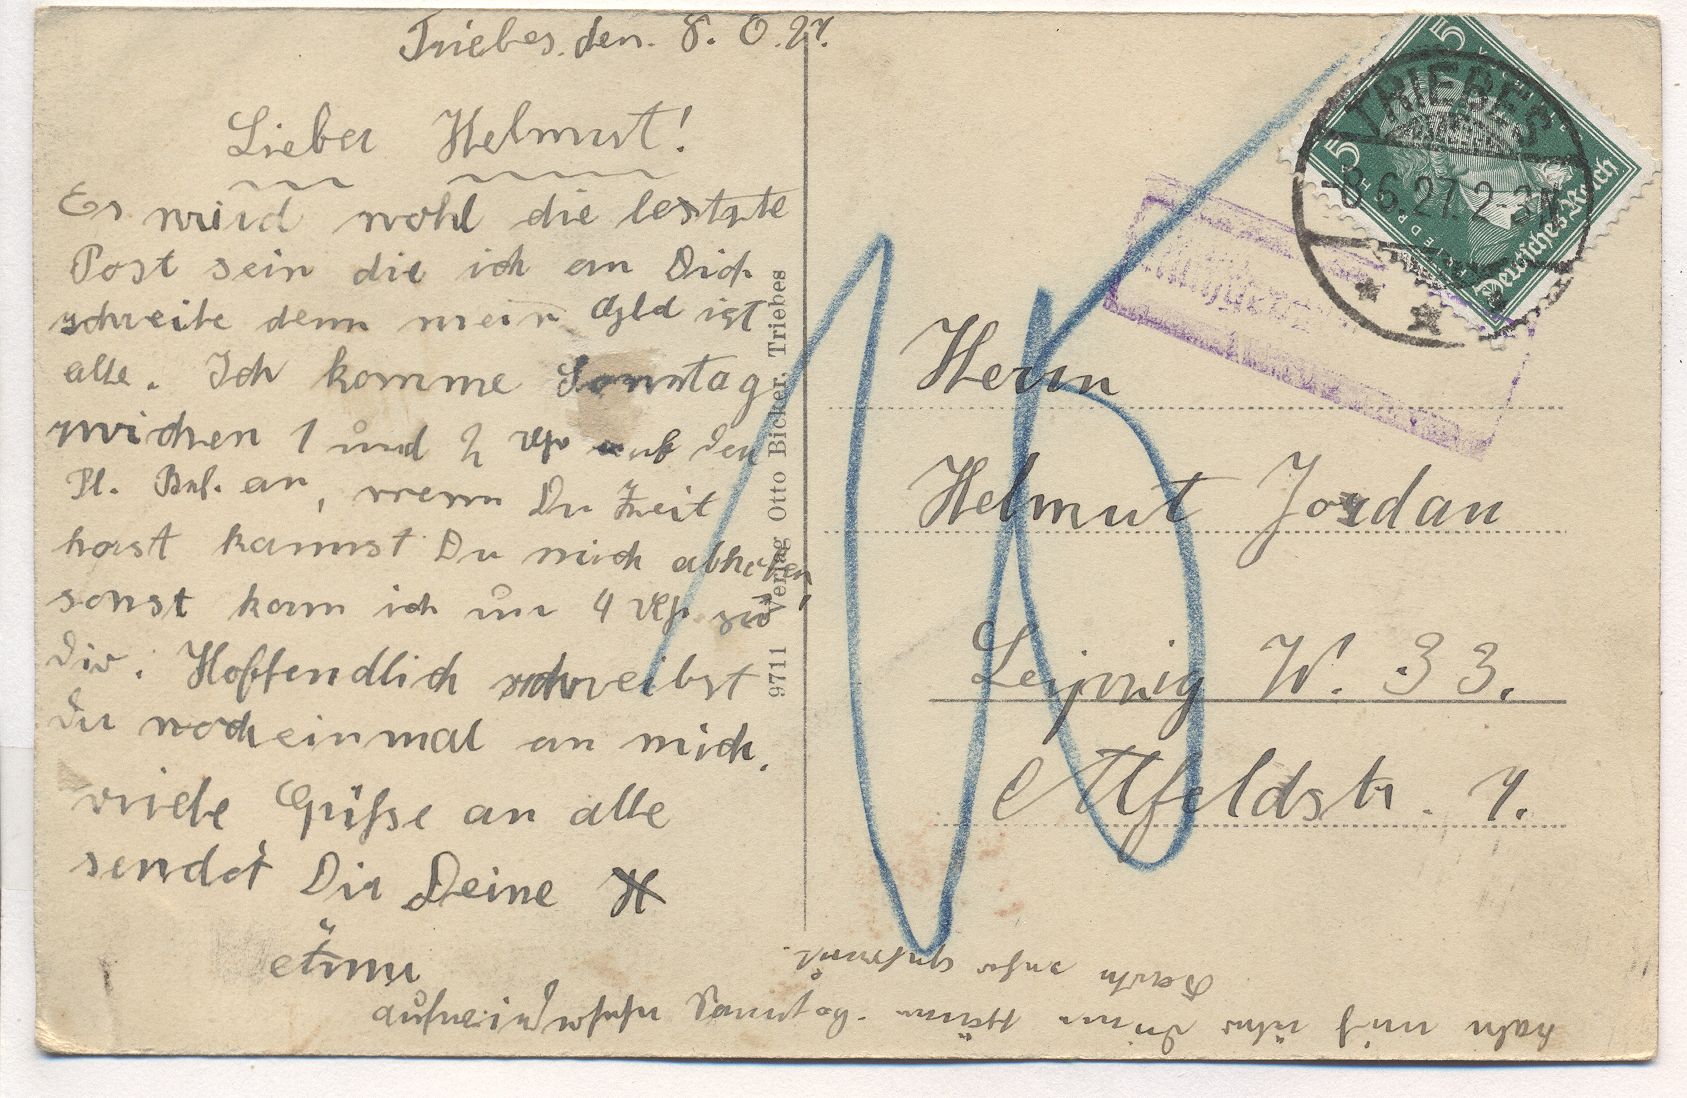 Triebes. den. 8. 6. 27.
Lieber Helmut!
Es wird wohl die lestzte
Post sein die ich an Dich
schreibe denn mein Geld ist
alle. Ich komme Sonntag
zwichen 1 und 2 Uhr auf den
Pl. Bhf. an, wenn Du Zeit
hast kannst Du mich abholen,
sonst kom ich um 4 Uhr zu
Dir. Hoffendlich schreibst
Du noch einmal an mich.
viele Grüße an alle
sendet Dir Deine H
habe mich über Deine
Karte sehr gefreut.
9711 Verlag Otto Bicker, Triebes
5 5
Deutsches Reich
TRIEBES
-8.6.27. 2-3N
Herrn
Helmut Jordan
Leipzig W. 33.
Attfeldstr. 7.